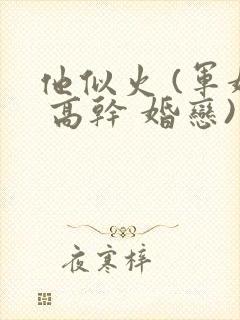 他似火（軍婚
高幹 婚戀）
夜寒梓